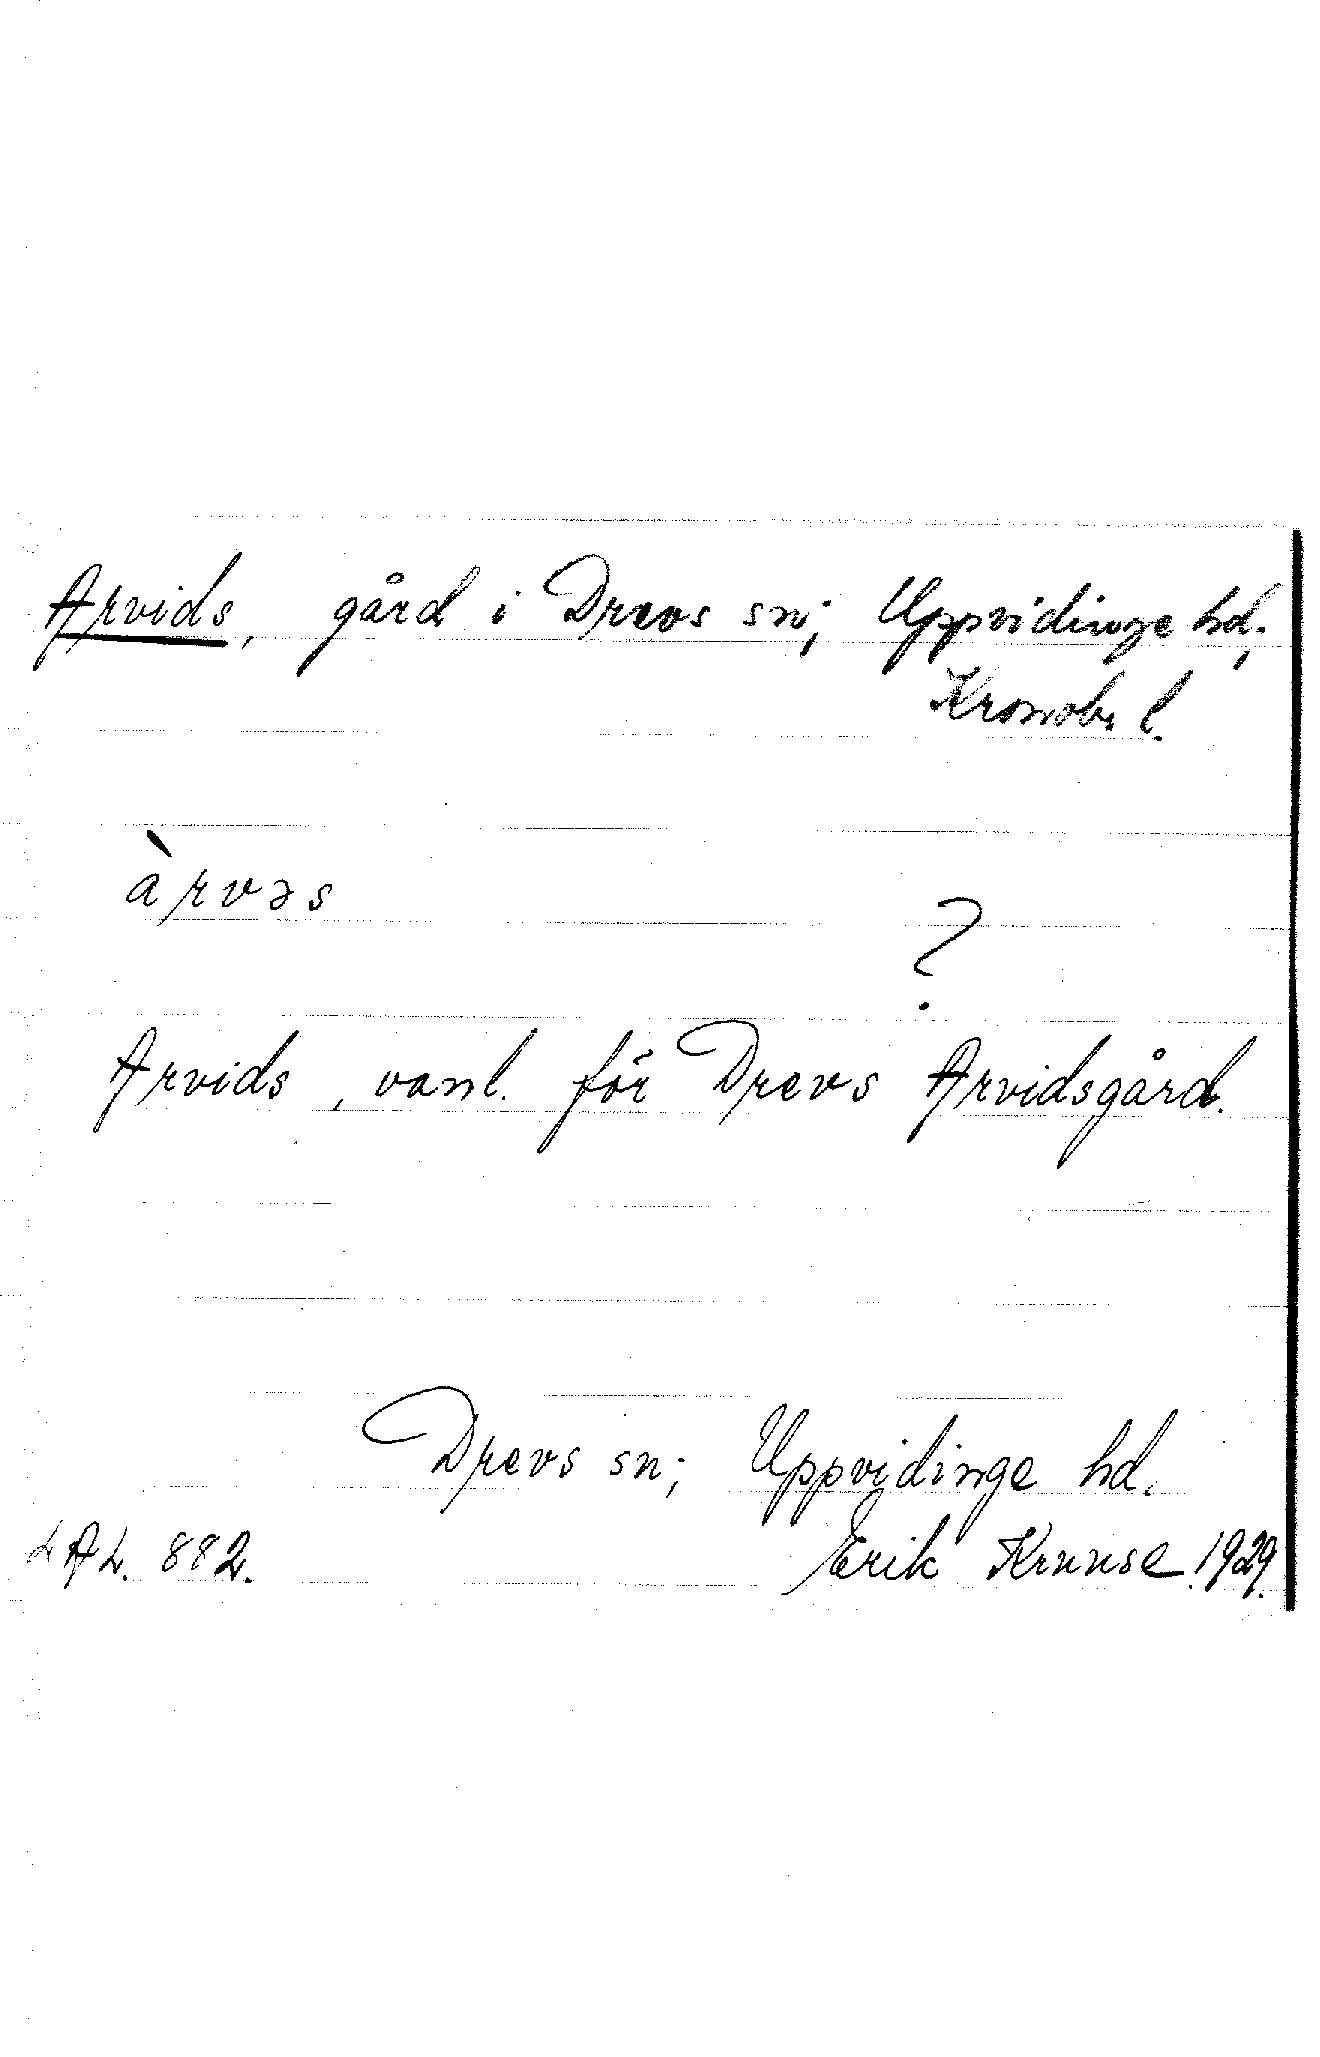 Arvids, gård i Drevs sn; Uppvidinge hd;
Kronobr l.
àrvəs
?
Arvids, vanl. för Drevs Arvidsgård.
Drevs sn; Uppvidinge hd.
LAL. 882. Erik Kruuse. 1929.